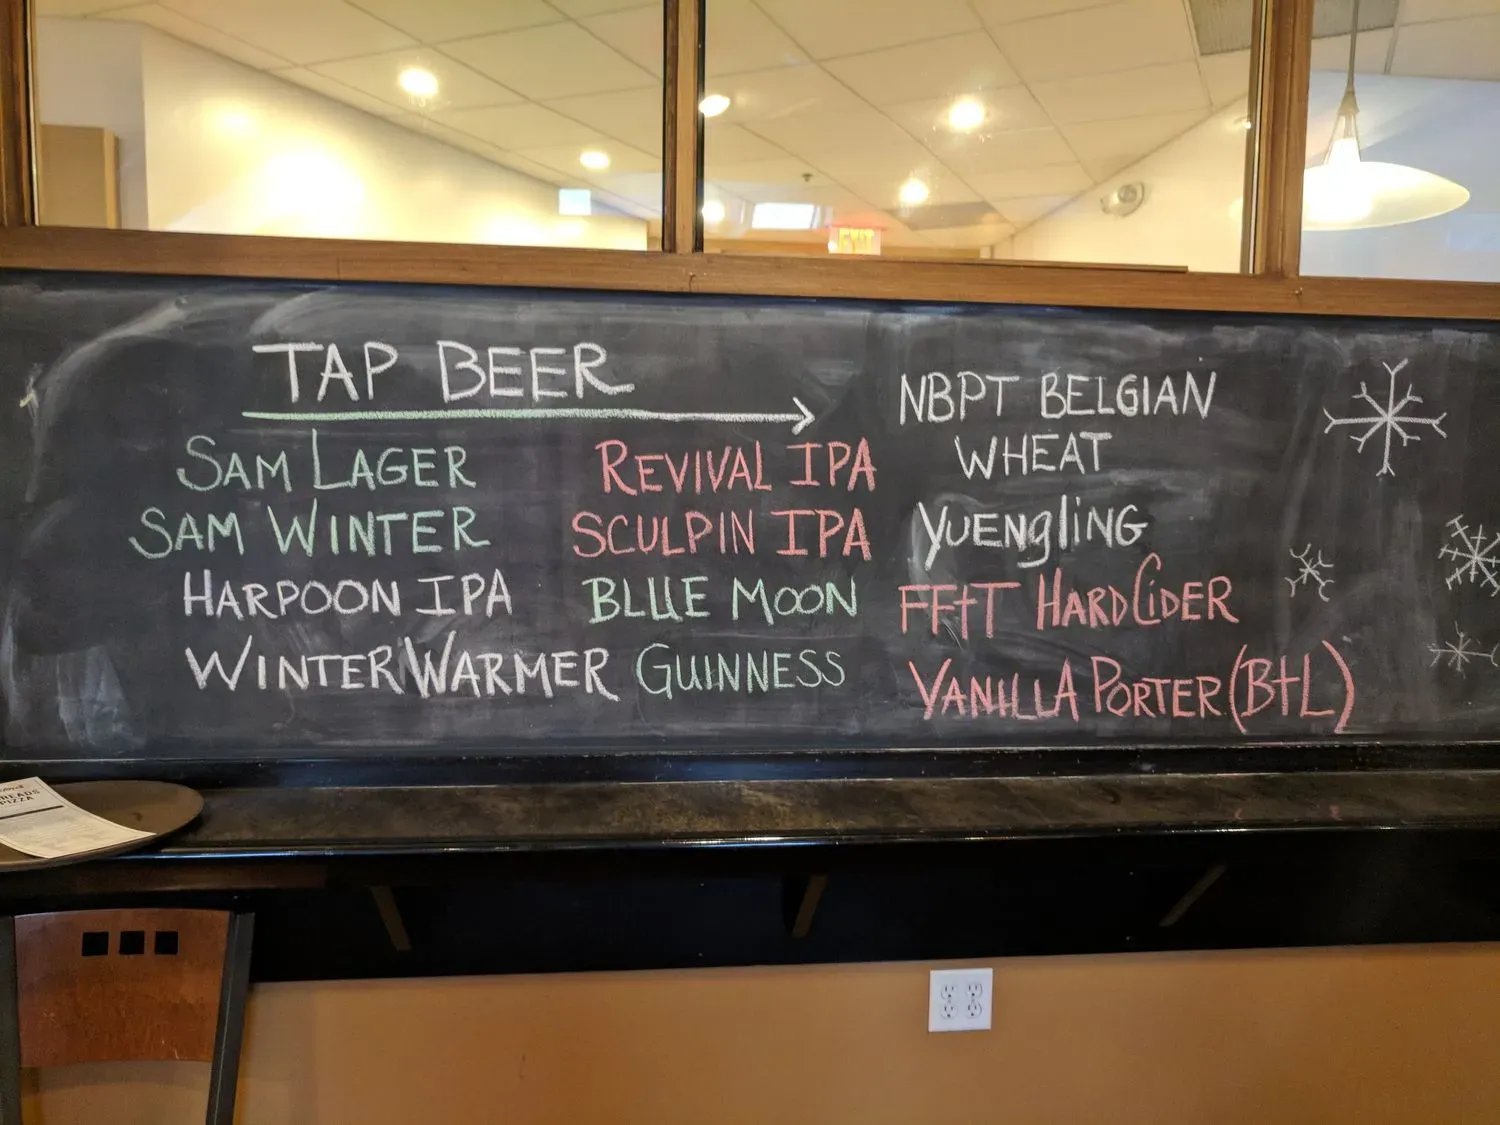 EXIT
TAP BEER
SAM LAGER
SAM WINTER
HARPOON IPA
WINTER WARMER
REVIVAL IPA
SCULPIN IPA
BLUE MOON
GUINNESS
NBPT BELGIAN
WHEAT
YUENGlING
FF+T HARD CIDER
VANILLA PORTER (B+L)
PIZZA